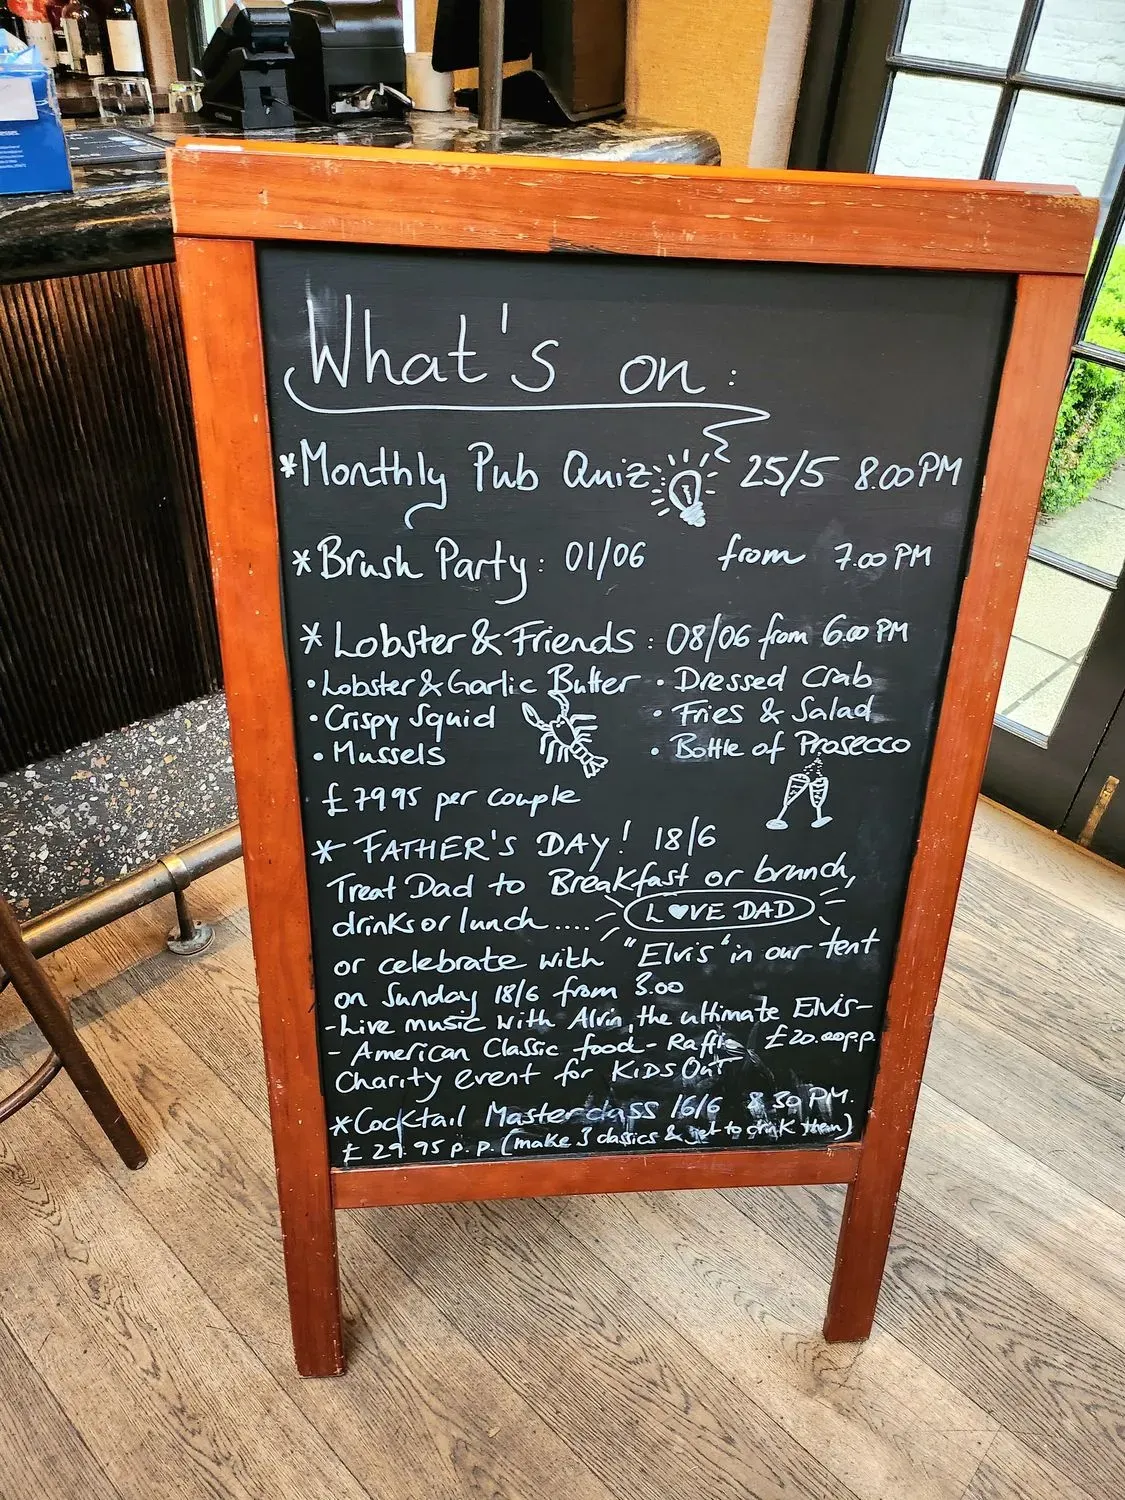 What's on:
*Monthly Pub Quiz 25/5 8.00 PM
*Brush Party: 01/06 from 7.00 PM
*Lobster & Friends: 08/06 from 6.00 PM
• Lobster & Garlic Butter • Dressed Crab
• Crispy Squid • Fries & Salad
• Mussels • Bottle of Prosecco
£79.95 per couple
* FATHER'S DAY! 18/6
Treat Dad to Breakfast or brunch,
drinks or lunch .... L♥VE DAD
or celebrate with "Elvis" in our tent
on Sunday 18/6 from 3.00
- Live music with Alvin, the ultimate Elvis -
- American Classic food - Raffle £20.00 p.p.
Charity event for KIDSOUT
*Cocktail Masterclass 16/6 8.30 PM.
£29.95 p.p. (make 3 classics & get to drink them)